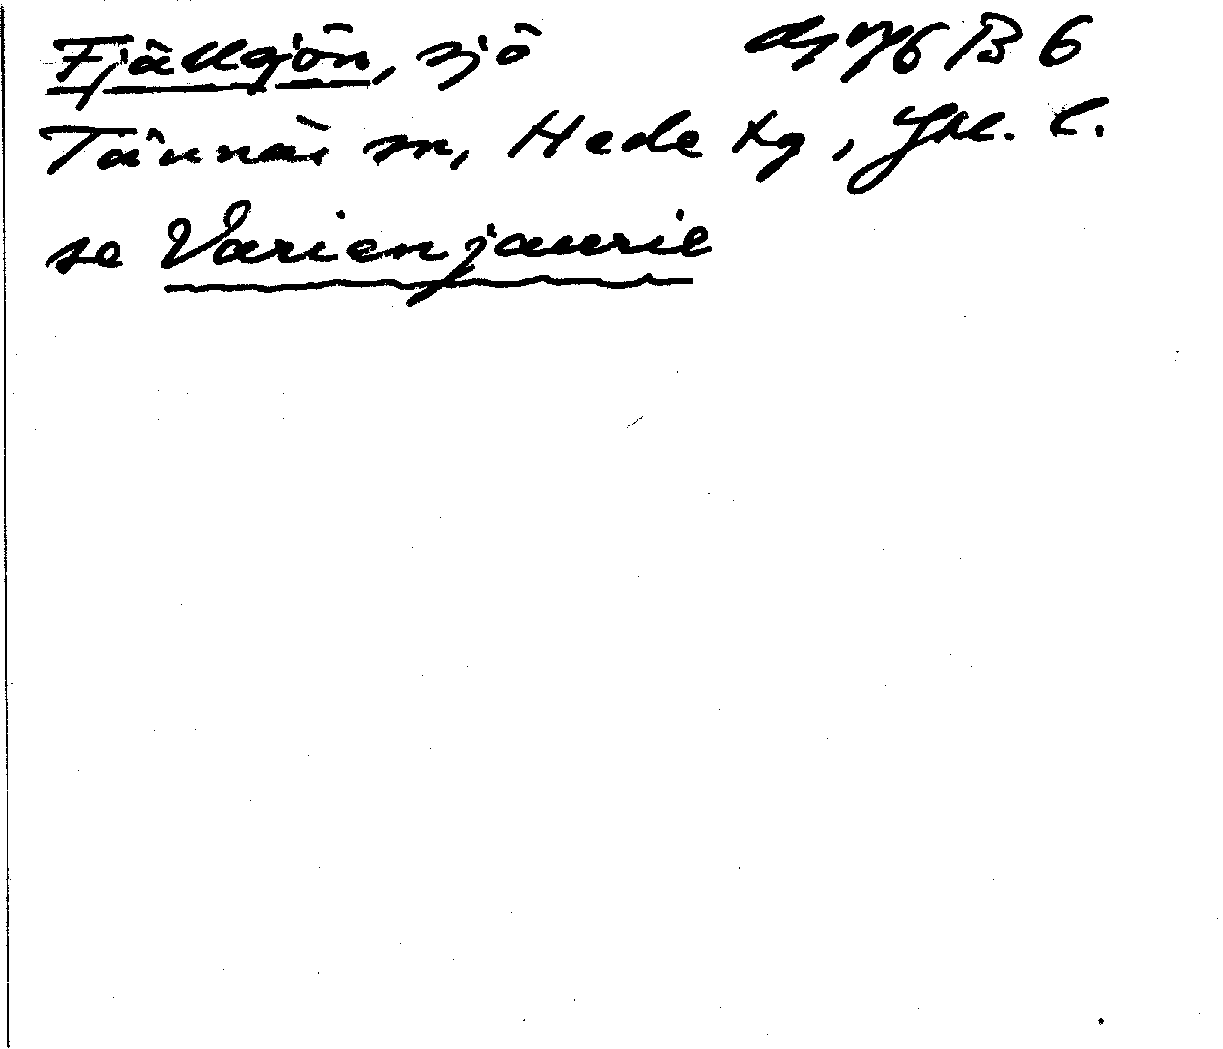 Fjällsjön, sjö B 6
Tännäs sn, Hede tg, Jtl. l.
se Varienjaurie